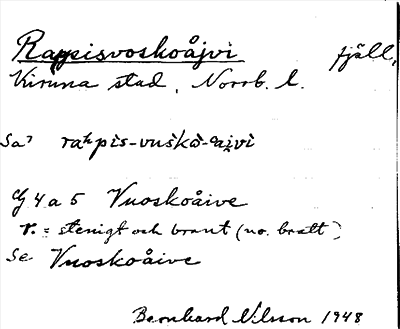 Rappisvoskoåjvi fjäll,
Kiruna stad, Norrb. l.
Sa? raʰpis-vuško-ɑi̯vi
Gf 4 a 5 Vuoskoåive
r. = stenigt och brant (no. bratt)
Se Vuoskoåive
Bernhard Nilsson 1948